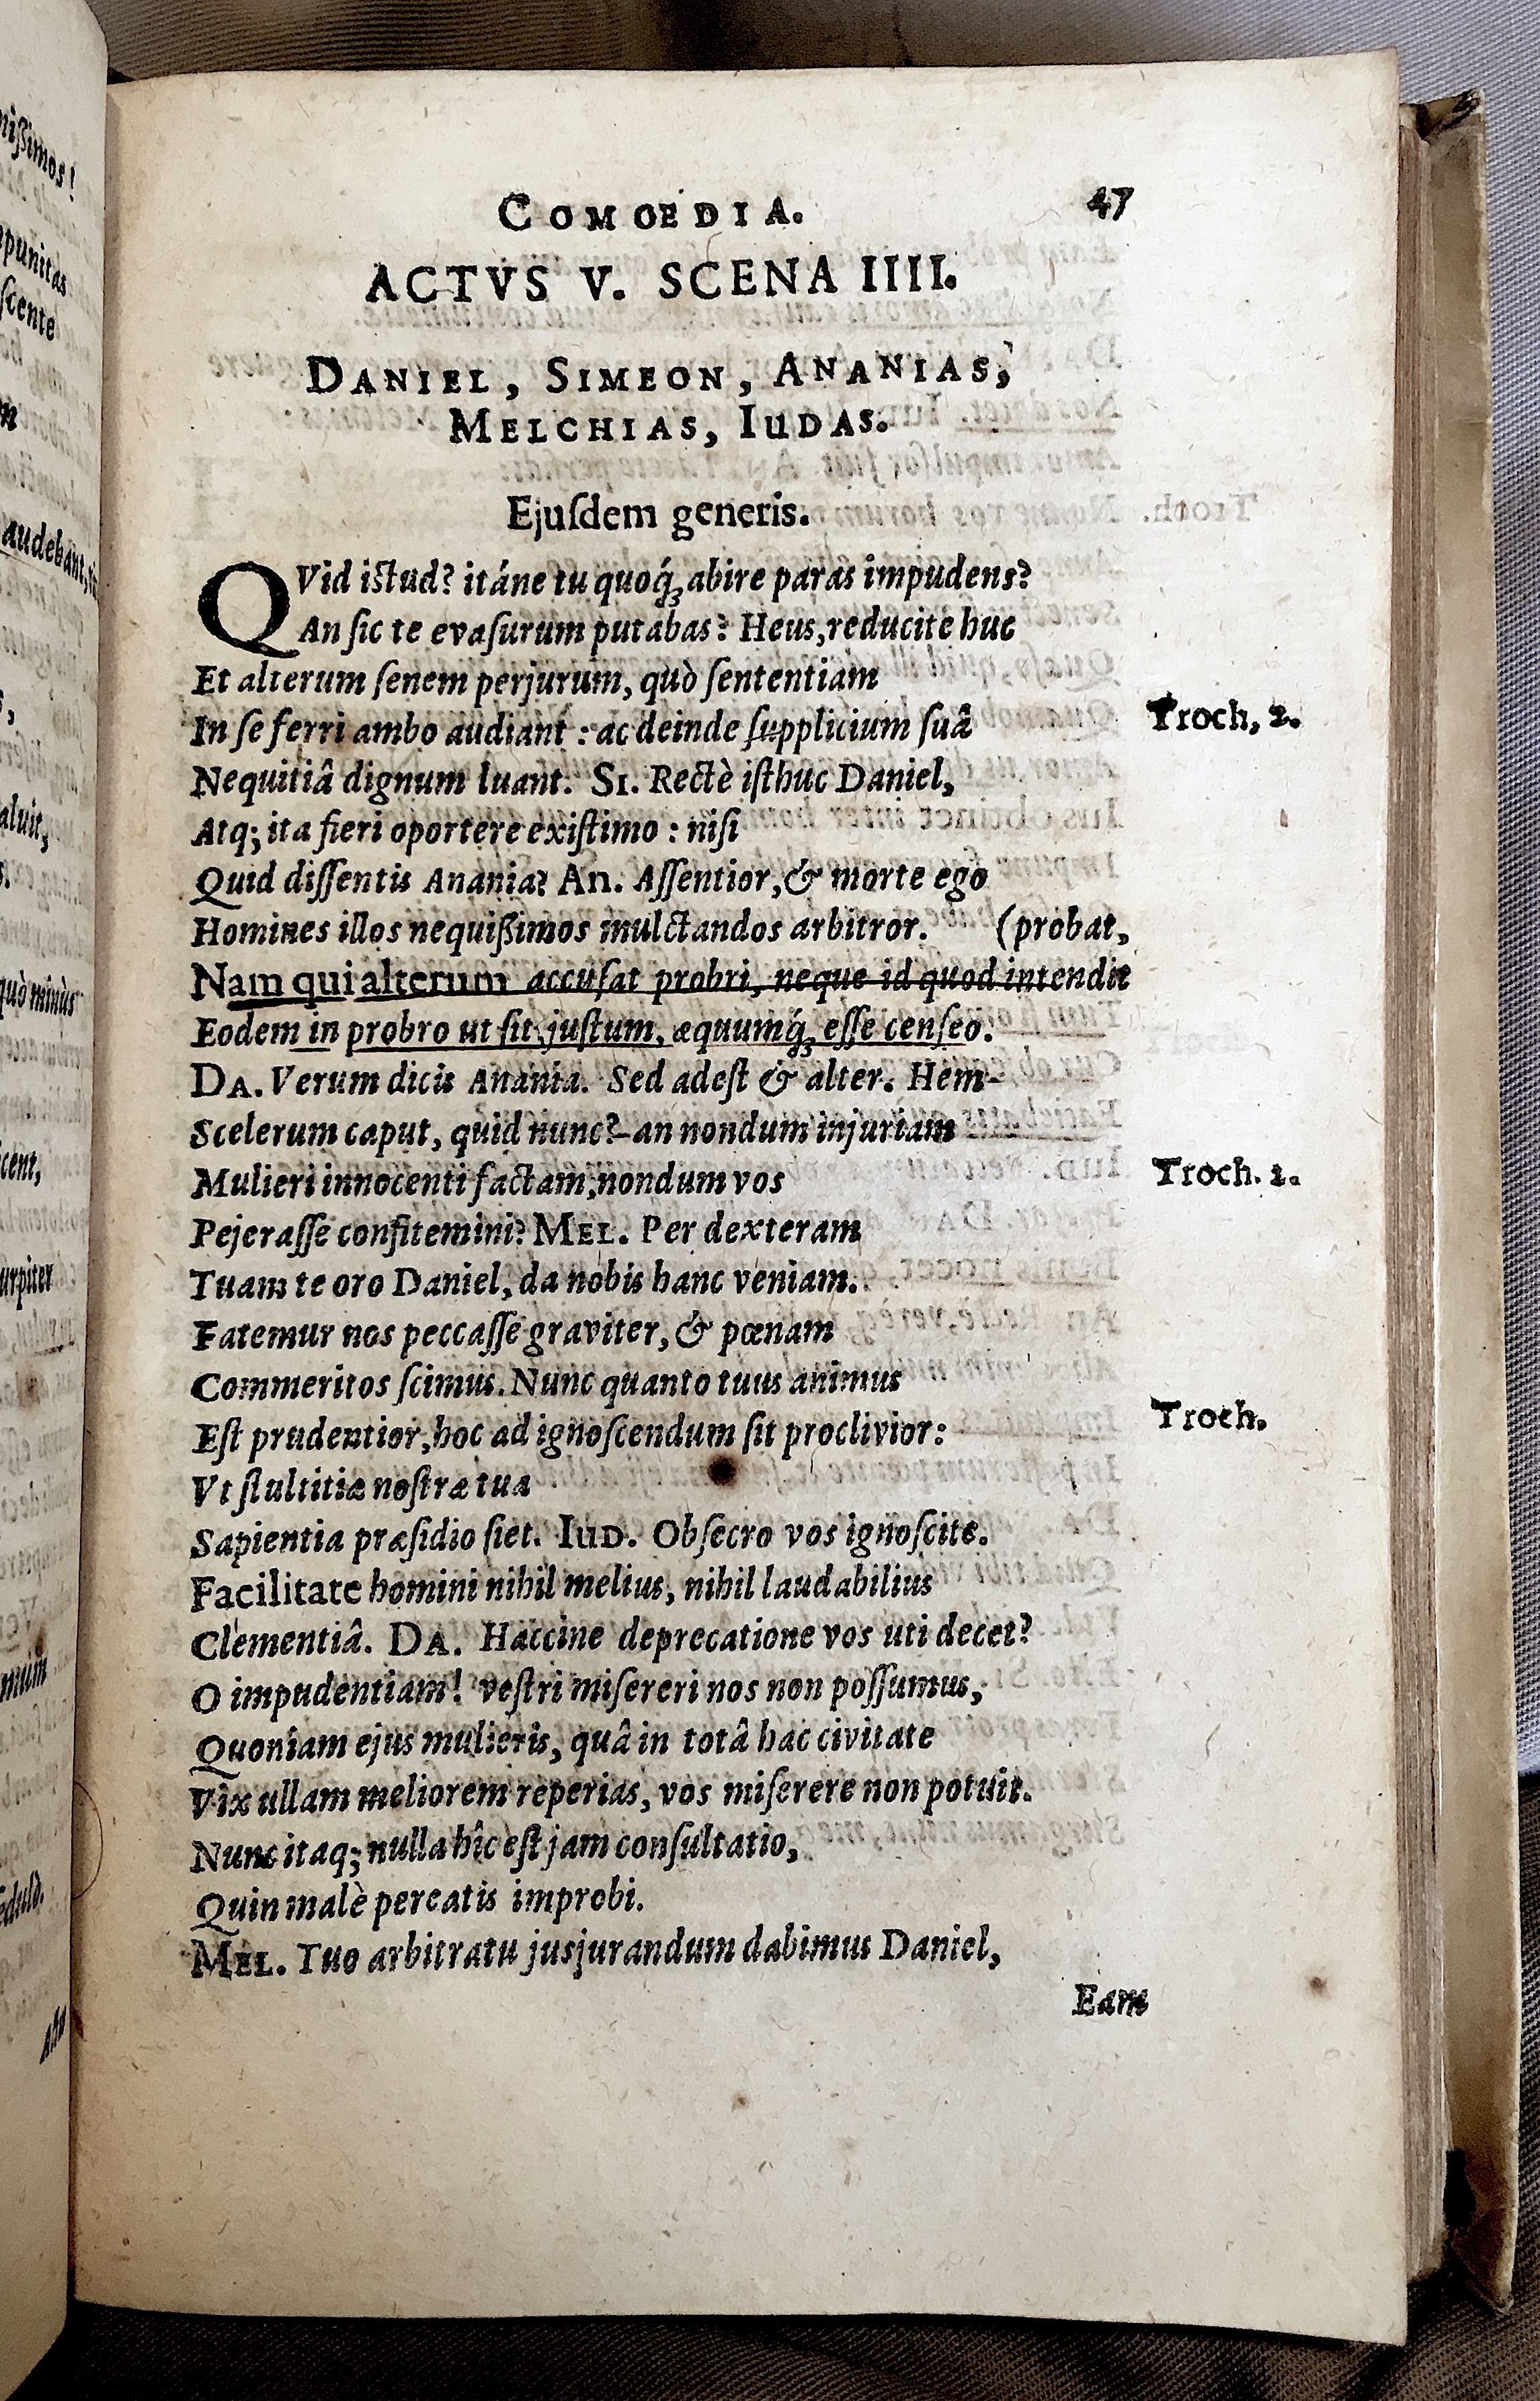 nißimos!
punitas
scente
audebant,
aluit,
quò minùs
cent,
urpiter
mum
COMOEDIA. 47
ACTVS V. SCENA IIII.
DANIEL, SIMEON, ANANIAS,
MELCHIAS, IUDAS.
Ejuſdem generis.
QVid iſtud? itáne tu quoq́ꝫ abire paras impudens?
An ſic te evaſurum putabas? Heus, reducite huc
Et alterum ſenem perjurum, quò ſententiam
In ſe ferri ambo audiant : ac deinde ſupplicium ſuâ Troch, 2.
Nequitiâ dignum luant. SI. Rectè iſthuc Daniel,
Atq; ita fieri oportere exiſtimo : niſi
Quid diſſentis Anania? An. Aſſentior, & morte ego
Homines illos nequißimos mulctandos arbitror. (probat,
Nam qui alterum accuſat probri, neque id quod intendit
Eodem in probro ut ſit, juſtum, æquumq́ꝫ eſſe cenſeo.
DA. Verum dicis Anania. Sed adeſt & alter. Hem
Scelerum caput, quid nunc? an nondum injuriam
Mulieri innocenti factam, nondum vos Troch. 2.
Pejeraſſe confitemini? MEL. Per dexteram
Tuam te oro Daniel, da nobis hanc veniam.
Fatemur nos peccaſſe graviter, & pœnam
Commeritos ſcimus. Nunc quanto tuus animus
Eſt prudentior, hoc ad ignoſcendum ſit proclivior: Troch.
Vt ſtultitiæ noſtræ tua
Sapientia præſidio ſiet. IUD. Obſecro vos ignoſcite.
Facilitate homini nihil melius, nihil laudabilius
Clementiâ. DA. Haccine deprecatione vos uti decet?
O impudentiam! veſtri miſereri nos non poſſumus,
Quoniam ejus mulieris, quâ in totâ hac civitate
Vix ullam meliorem reperias, vos miſerere non potuit.
Nunc itaq; nulla hîc eſt jam conſultatio,
Quin malè pereatis improbi.
MEL. Tuo arbitratu jusjurandum dabimus Daniel,
Eam